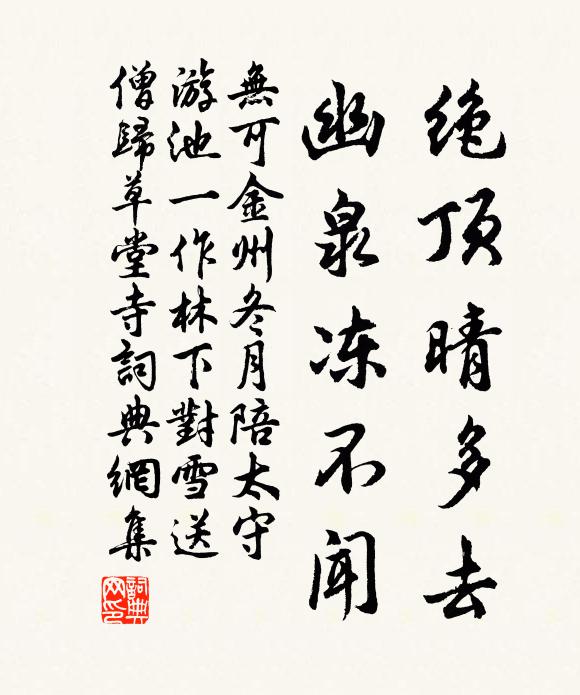 绝顶晴多去
幽泉冻不闻
無可金州冬月陪太守
游池一作林下對雪送
僧歸草堂寺詞典網集
詞典網印